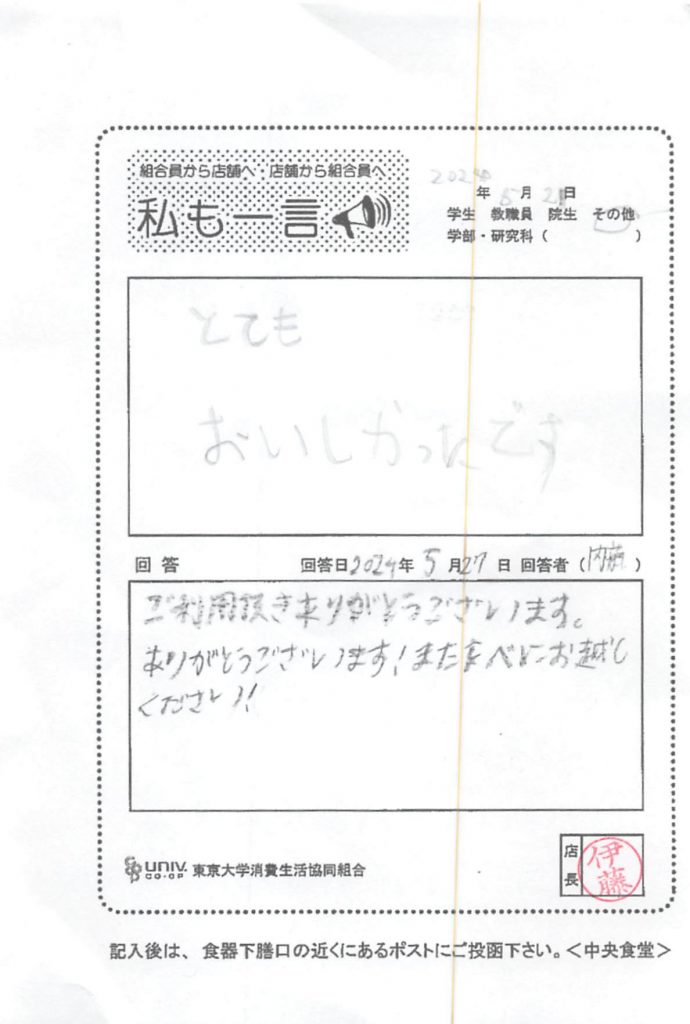 組合員から店舗へ・店舗から組合員へ
私も一言
2024年5月21日
学生 教職員 院生 その他
学部・研究科( )
とても
おいしかったです
回答 回答日2024年5月27日 回答者(内藤)
ご利用頂きありがとうございます。
ありがとうございます!また食べにお越し
ください!!
UNIV. CO-OP 東京大学消費生活協同組合
店長 伊藤
記入後は、食器下膳口の近くにあるポストにご投函下さい。<中央食堂>